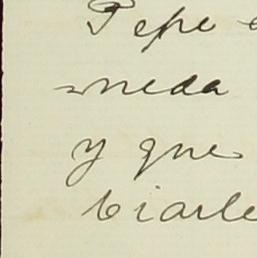 Pepe e
=neda
y que
biarle